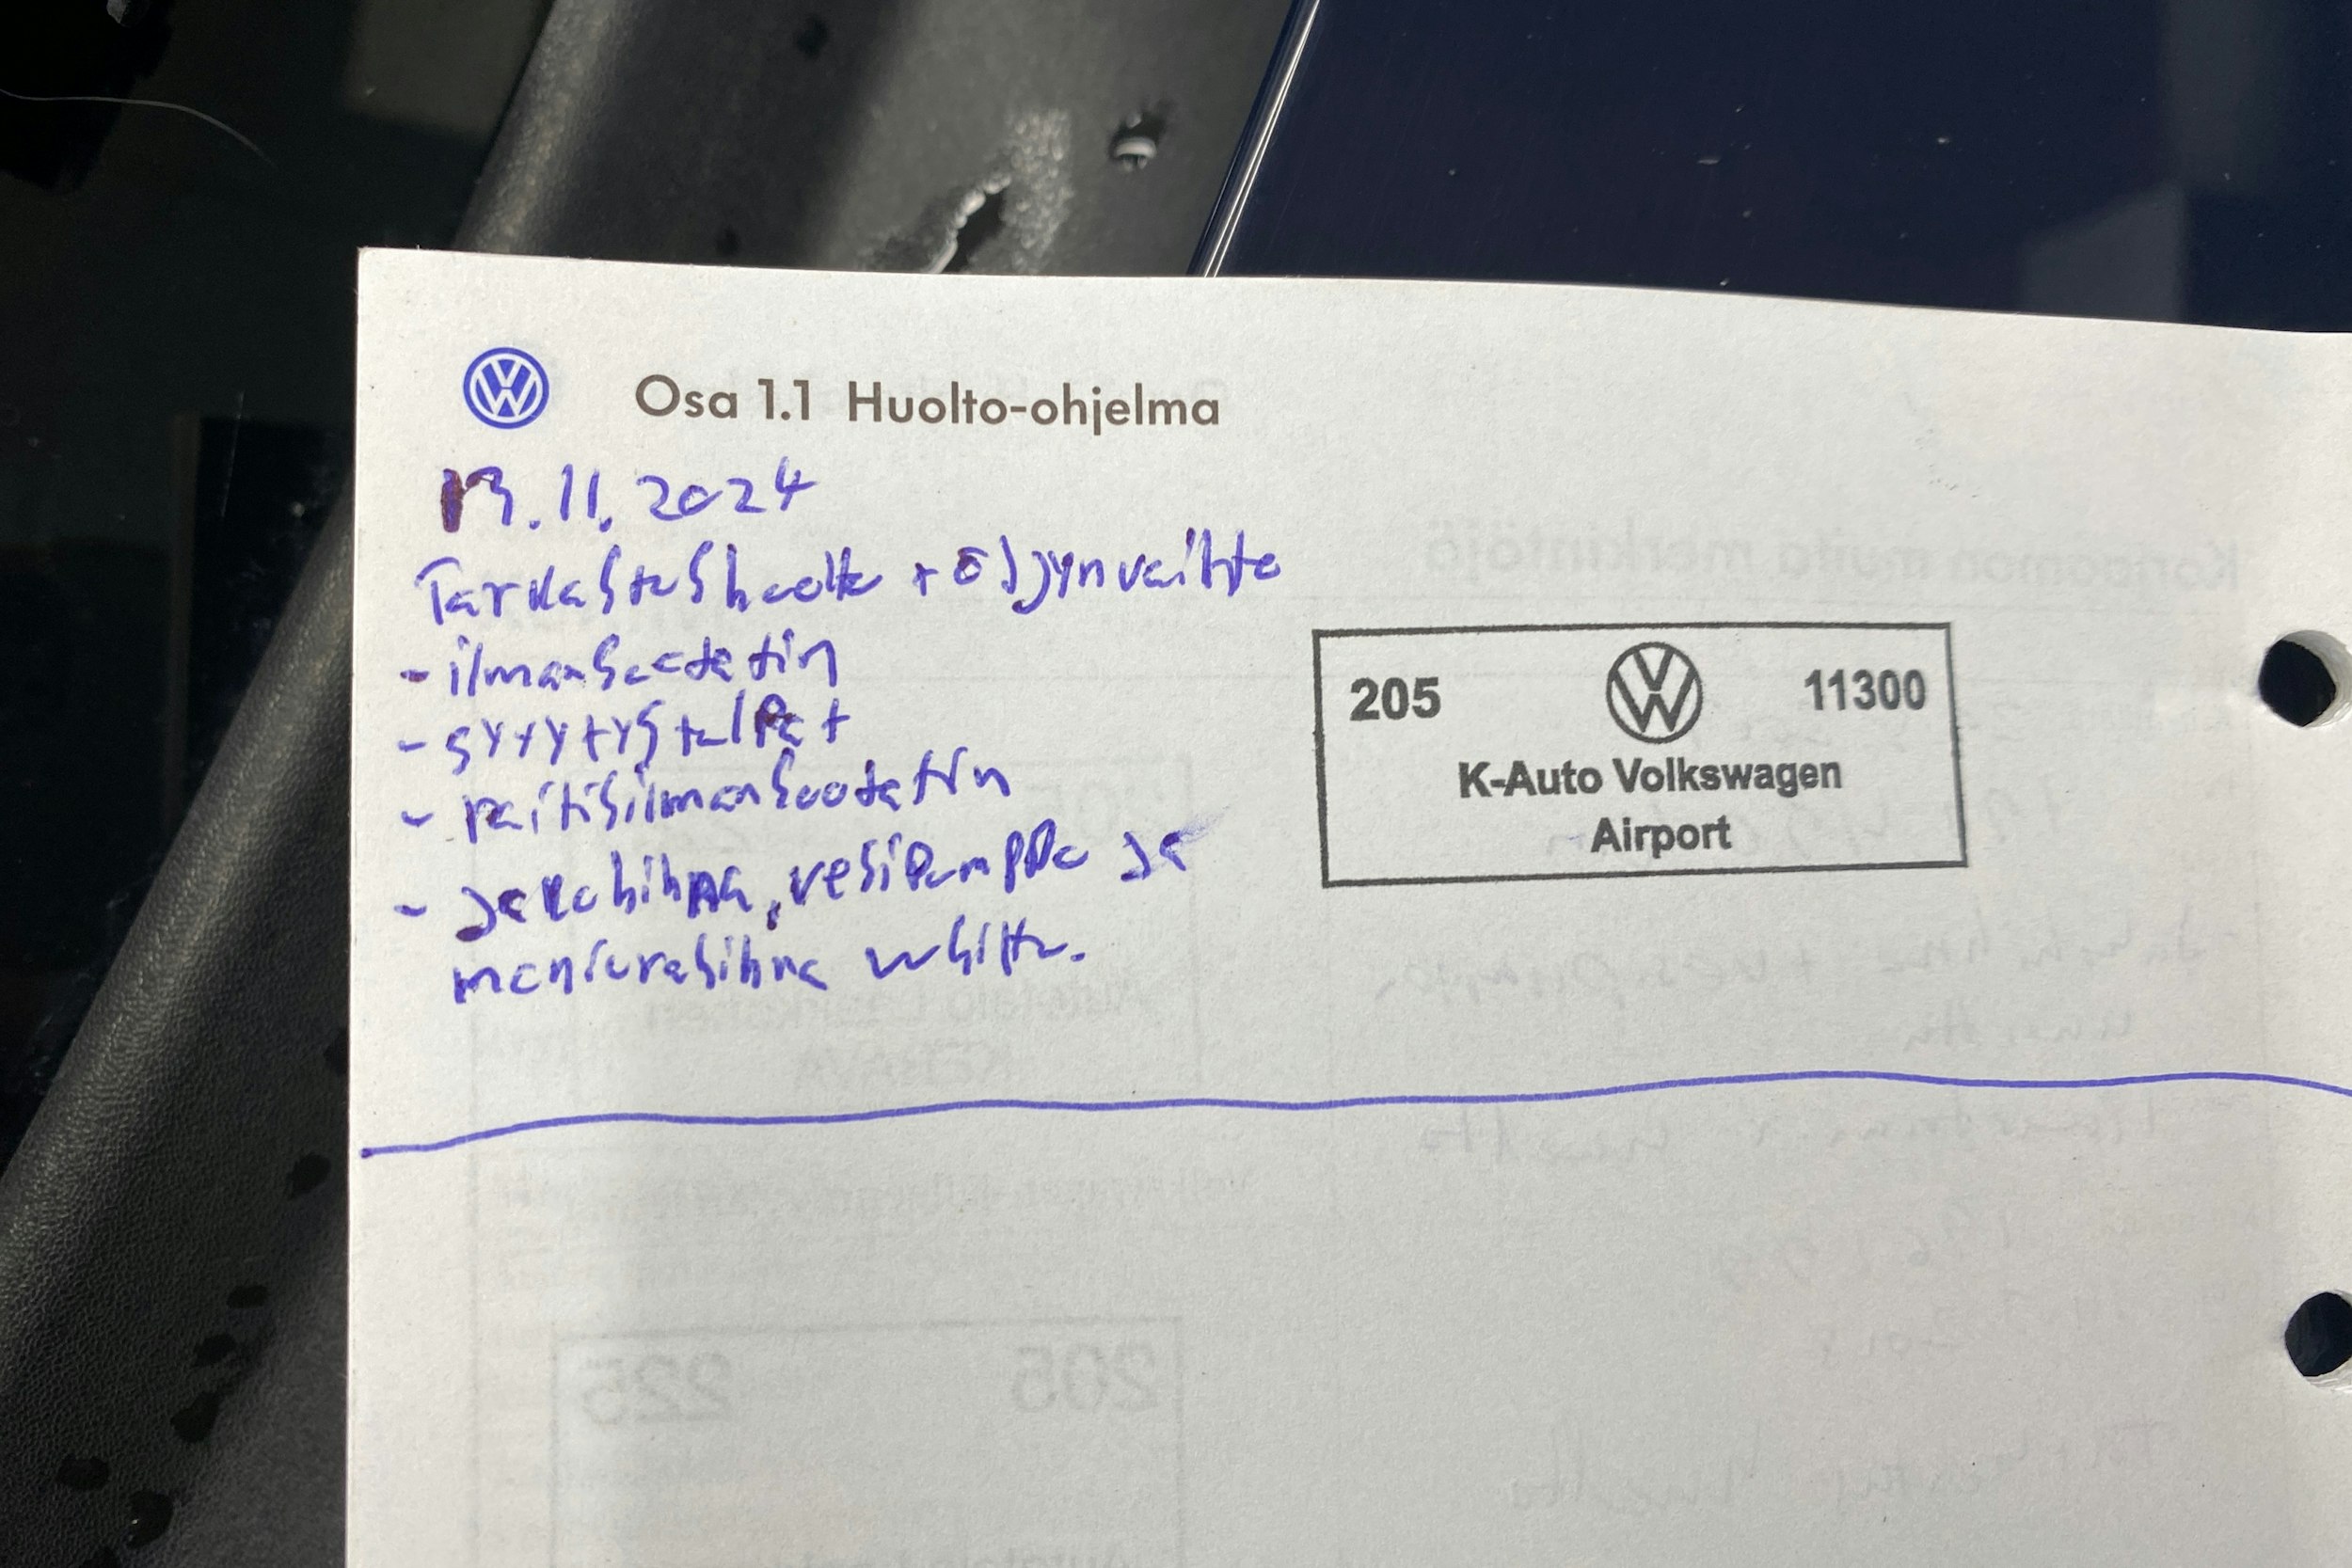 Osa 1.1 Huolto-ohjelma
13.11.2024
Tarkastushuolto + öljynvaihto
- ilmansuodatin
- sytytystulpat
- raitisilmansuodatin
- jakohihna, vesipumppu ja
moniurahihna uusittu.
205 11300
K-Auto Volkswagen
Airport
Korjaamon muita merkintöjä
205 225